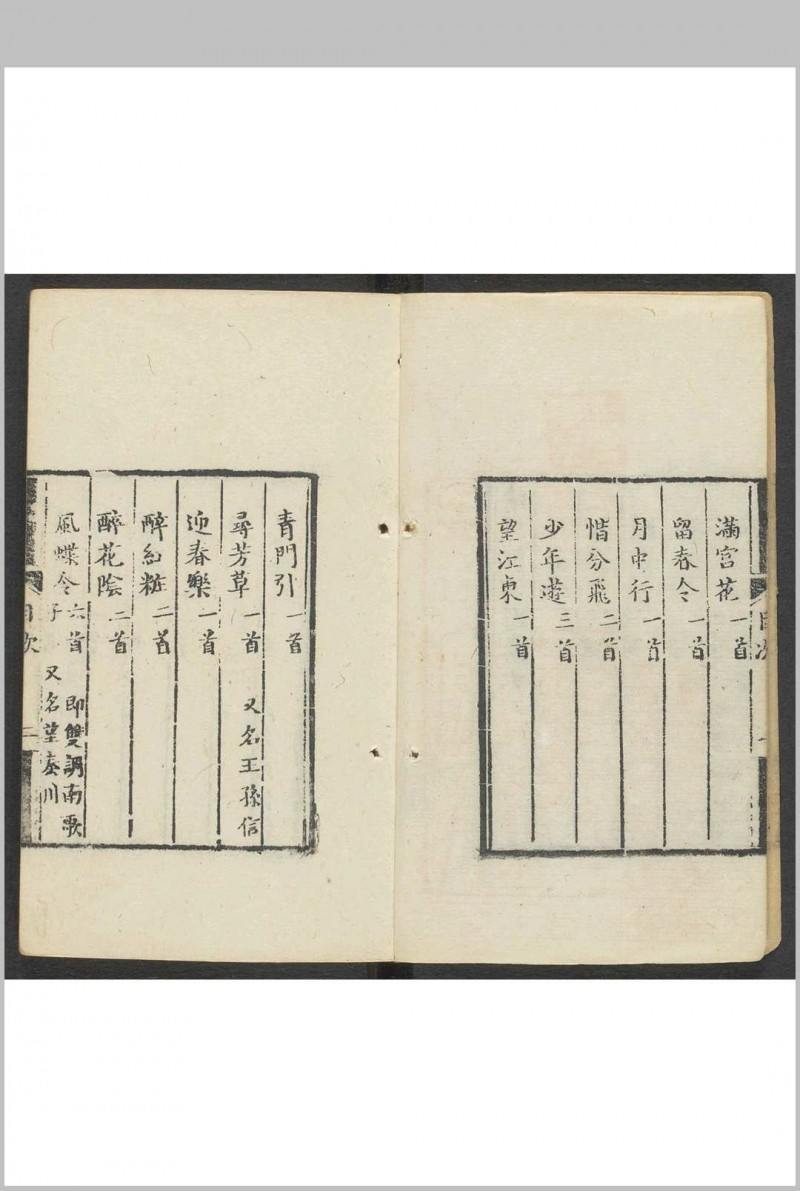 目次
滿宮花一首
留春令一首
月中行一首
惜分飛二首
少年遊三首
望江東一首
青門引一首
尋芳草一首 又名王孫信
迎春樂一首
醉紅粧二首
醉花陰二首
風蝶令六首 即雙調南歌
子 又名望秦川
目次 二